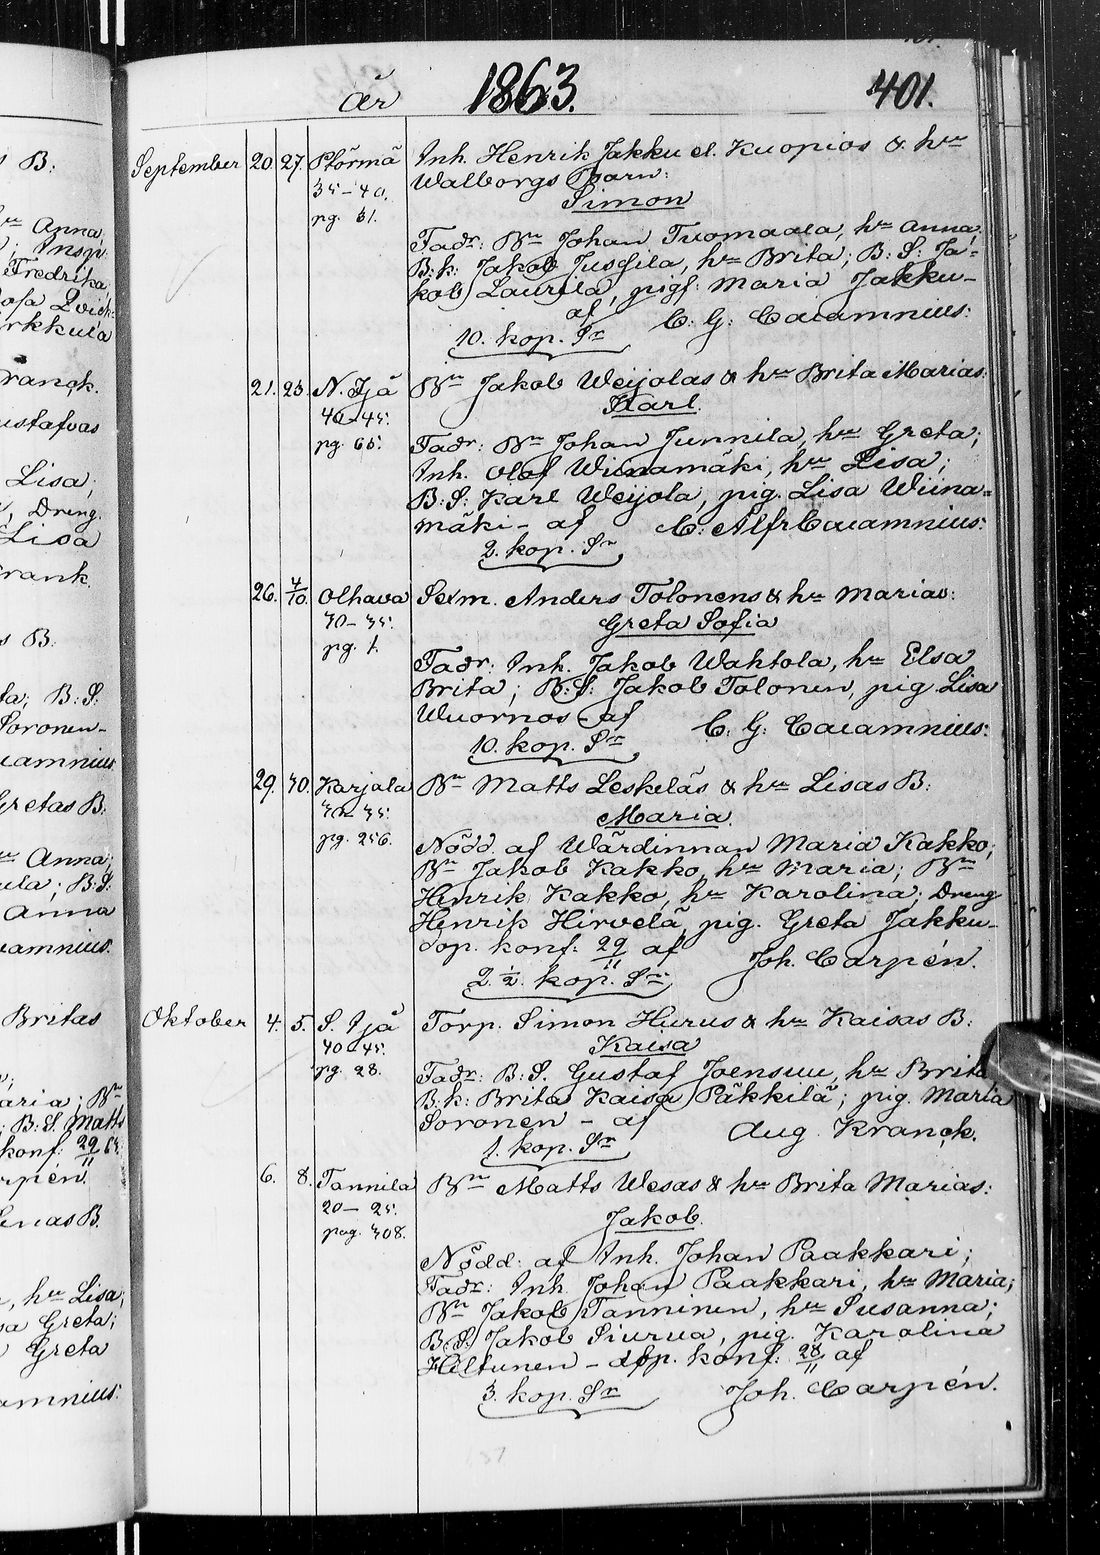 år 1863. 401.
September 20. 27. Pörmä Inh. Henrik Jakku el. Kuopios & hrn
35–40. Walborgs Barn:
pg. 31. Simon
Fadr: Bn Johan Tuomaala, hn Anna;
B:k: Jakob Jussila, hn Brita; B: S: Ja=
kob Laurila, pigf: Maria Jakku–
af C. G. Calamnius:
10. kop. Sr
21. 23. N. Ijå Bn Jakob Weijolas & hn Brita Marias:
40–45. Karl.
pg. 65. Fadr: Bn Johan Junnila, hn Greta;
Inh. Olof Wiinamäki, hn Lisa;
B: S: Karl Weijola, pig. Lisa Wiina=
mäki – af C: Alfr Calamnius:
2. kop. Sr
26. 4/10. Olhava Sexm. Anders Tolonens & hn Marias:
30–35. Greta Sofia
pg. 1. Fadr: Inh. Jakob Wahtola, hn Elsa
Brita; B: S: Jakob Tolonen, pig Lisa
Wuornos – af C. G. Calamnius:
10. kop. Sr
29. 30. Karjala Bn Matts Leskeläs & hn Lisas B:
30–35. Maria.
pg. 256. Nödd. af Wärdinnan Maria Kakko;
Bn Jakob Kakko, hn Maria; Bn
Henrik Kakko, hn Karolina; Dreng
Henrik Hirvelä, pig. Greta Jakku–
dop. konf: 29/11 af Joh. Carpén.
2 1/2. kop. Sr
Oktober 4. 5. S. Ijå Torp: Simon Hurus & hn Kaisas B:
40–45. Kaisa
pg. 28. Fadr: B: S. Gustaf Joensuu, hn Brita
B:k: Brita Kaisa Päkkilä; pig. Maria
Soronen – af Aug. Kranck.
1. kop. Sr
6. 8. Tannila Bn Matts Wesas & hn Brita Marias:
20–25. Jakob.
pag. 308. Nödd: af Inh. Johan Paakkari;
Fadr: Inh. Johan Paakkari, hn Maria;
Bn Jakob Tanninen, hn Susanna;
B: S: Jakob Siurua, pig. Karolina
Hiltunen – dop. konf: 28/11 af
3. kop. Sr Joh. Carpén.